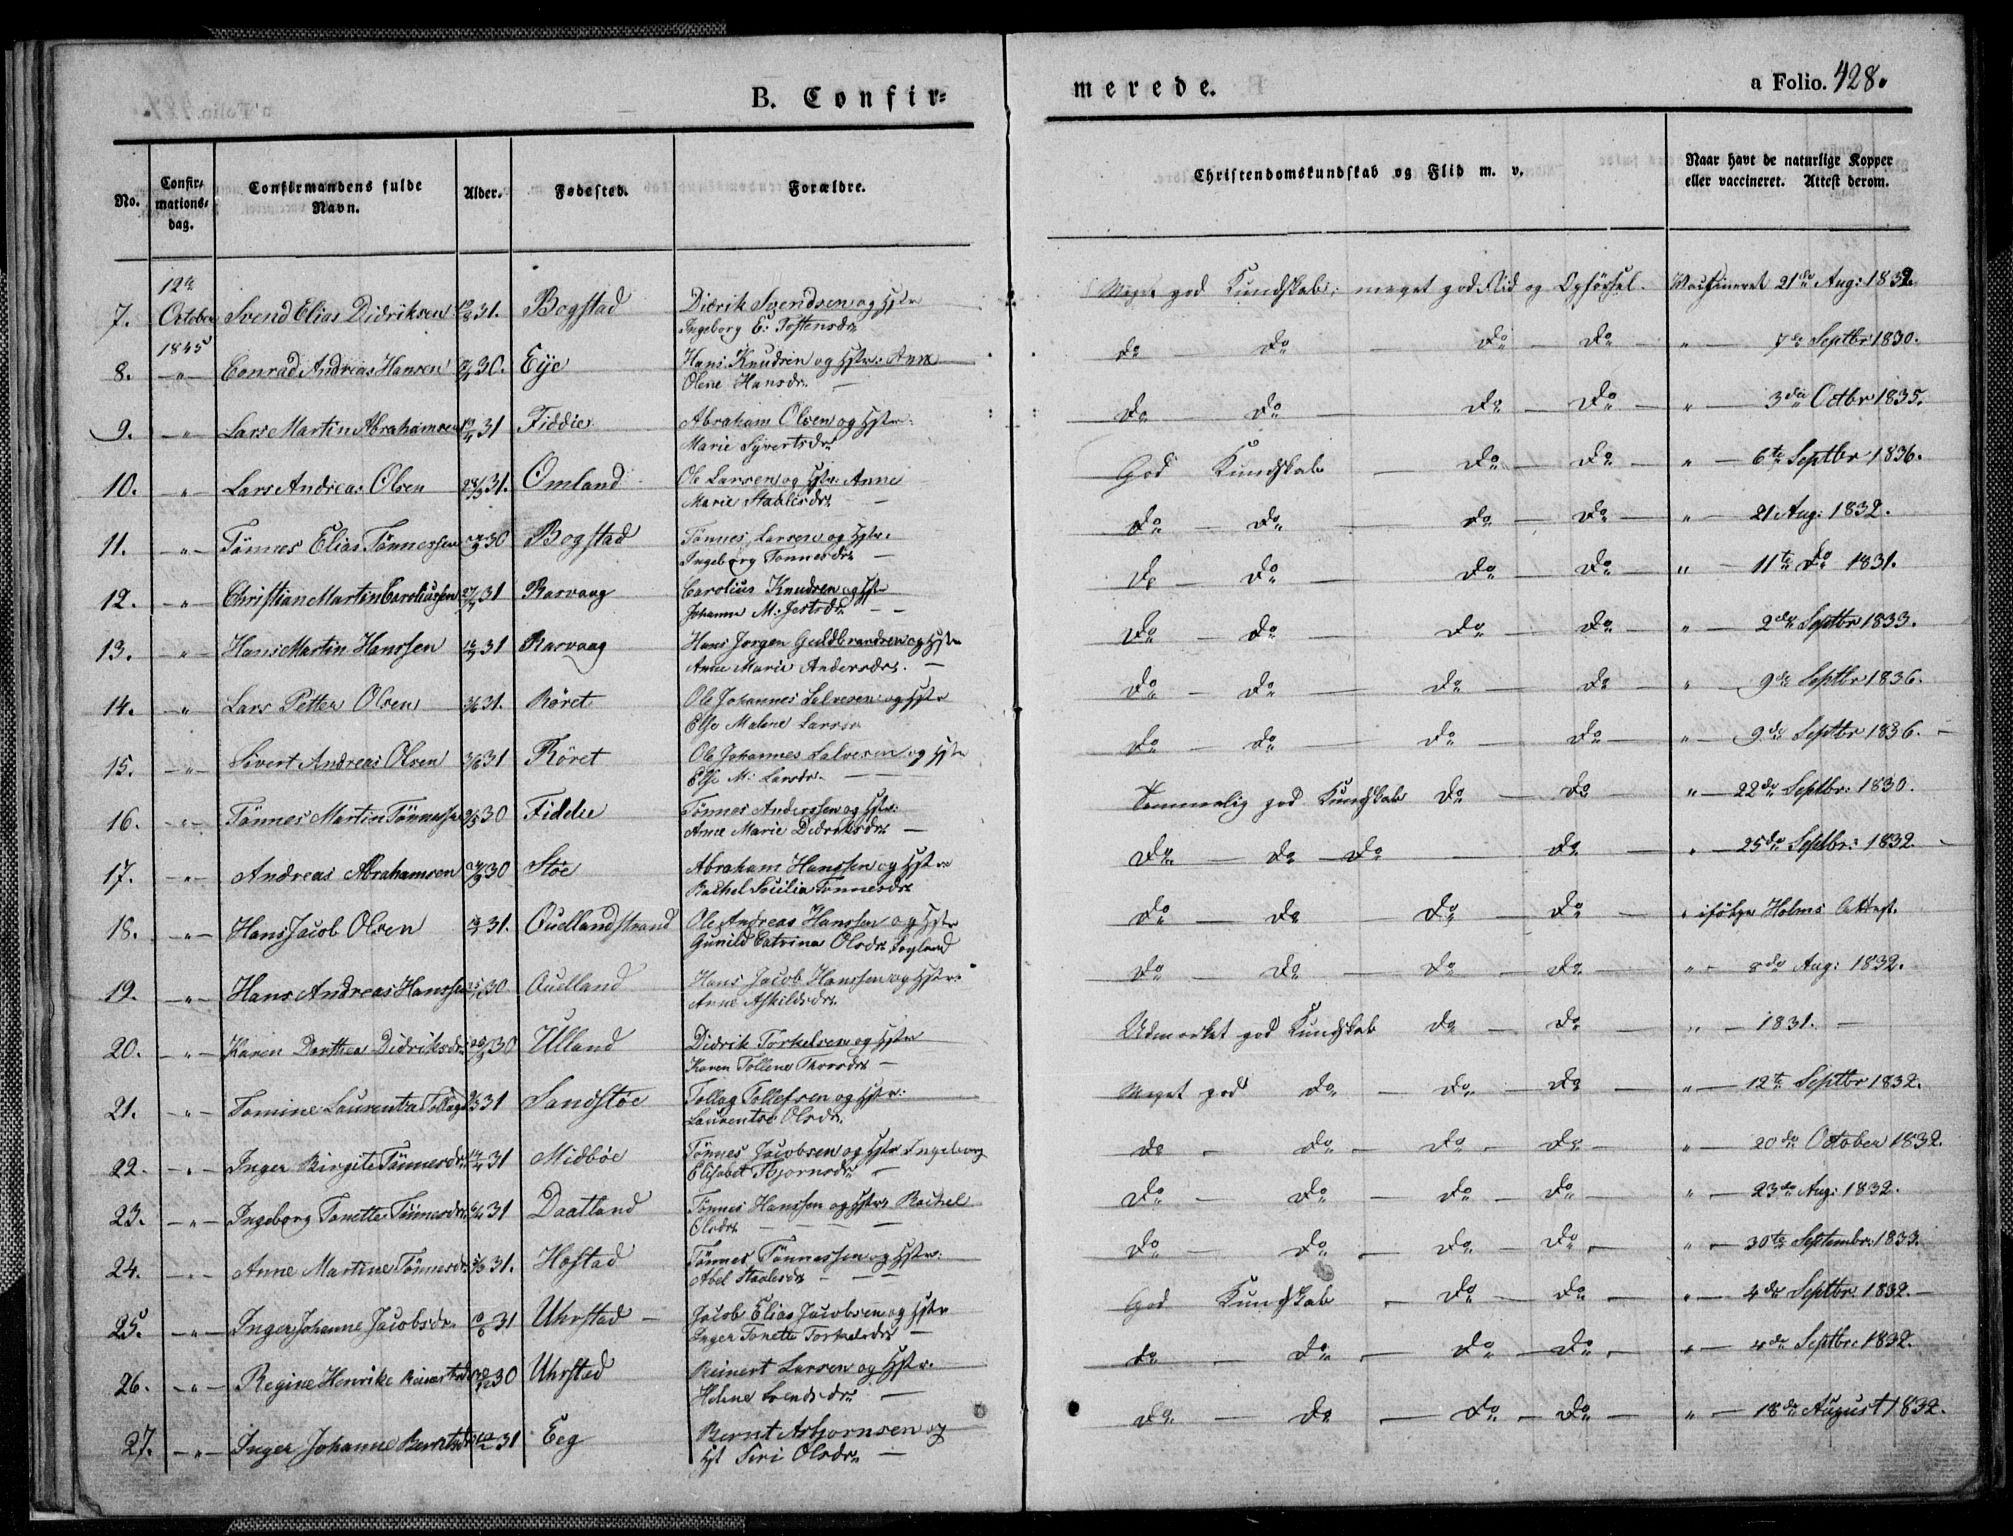 B. Confirmerede.
a Folio. 428.
No. Confirmationsdag. Confirmandens fulde Navn. Alder. Fødested. Forældre. Christendomskundskab og Flid m. v. Naar havt de naturlige Kopper eller vaccineret. Attest derom.
12te October 1845
7. Svend Elias Didriksen 31. Bogstad Didrik Svendsen og Hstr Ingeborg E. Tostensdr. Meget god Kundskab; meget god Flid og Opførsel. Vaccineret 21de Aug: 1832.
8. " Conrad Andreas Hansen 30. Eije Hans Knudsen og Hstr: Anne Olene Hansdr. do do do do " 7de Septbr 1830.
9. " Lars Martin Abrahamsen 31 Fiddie Abraham Olsen og Hstr: Marie Syvertsdr do do do do " 3die Octbr 1835.
10. " Lars Andreas Olsen 31. Omland Ole Larsen og Hstr: Anne Marie Staalesdr God Kundskab do do " 6te Septbr 1836.
11. " Tönnes Elias Tönnessen 30 Bogstad Tönnes Larsen og Hstr: Ingeborg Tonnesdr do do do do " 21 Aug: 1832.
12. " Christian Martin Caroliussen 31 Rasvaag Carolius Knudsen og Hstr Johanne M: do do do do " 11te do 1831.
13. " Hans Martin Hanssen 31 Rasvaag Hans Jorgen Guldbrandsen og Hstr Anne Marie Andersdr. do do do do " 2den Septbr 1833.
14. " Lars Petter Olsen 31. Röret Ole Johannes Salvesen og Hstr Else Malene Larsdr do do do do " 9de Septbr 1836.
15. " Sivert Andreas Olsen 31 Röret Ole Johannes Salvesen og Hstr Else M: Larsdr. do do do do " 9de Septbr 1836.
16. " Tönnes Martin Tönnessen 30 Fiddie Tönnes Anderssen og Hstr: Anne Marie Didriksdr Temmelig god Kundskab do do " 22de Septbr: 1830.
17. " Andreas Abrahamsen 30 Stöe Abraham Hanssen og Hstr Rachel Secilia Tonnesdr do do do do " 25de Septbr: 1832.
18. " Hans Jacob Olsen 31. Quellandstrand Ole Andreas Hanssen og Hstr Gunild Catrina Olsdr Fogland do do do do " ifölge Holms Attest.
19. " Hans Andreas Hanssen 30 Quelland Hans Jacob Hanssen og Hstr: Anne Askildsdr. do do do do " 8de Aug: 1832.
20. " Karen Dorthea Didriksdr 30 Ulland Didrik Torkelsen og Hstr Karen Tolline Thorsdr Udmærket god Kundskab do do " 1831.
21. " Tomine Laurentza Tollagsdr 31 Sandstöe Tollag Tollefsen og Hstr: Laurentze Olsdr. Meget god do do do " 12te Septbr 1832.
22. " Inger Birgite Tönnesdr 31 Midböe Tönnes Jacobsen og Hstr Ingeborg Elisabet Bjornsdr do do do do " 20de October 1832.
23. " Ingeborg Tonette Tönnesdr 31 Daatland Tönnes Hanssen og Hstr Rachel Olsdr do do do do " 23de Aug: 1832.
24. " Anne Martine Tönnesdr 31. Hostad Tönnes Tönnessen og Hstr: Abel Staalesdr do do do do " 30te Septembr: 1833.
25. " Inger Johanne Jacobsdr 31 Uhrstad Jacob Elias Jacobsen og Hstr Inger Tonette Torkelsdr God Kundskab do do " 4de Septbr 1832.
26. " Regine Henrike Reinertsdr 30 Uhrstad Reinert Larsen og Hstr. Helene Svendsdr do do do do " 4de Septbr: 1832.
27. " Inger Johanne Berntsdr 31 Eeg Bernt Asbjornsen og Hst Siri Olsdr do do do do " 18de August 1832.